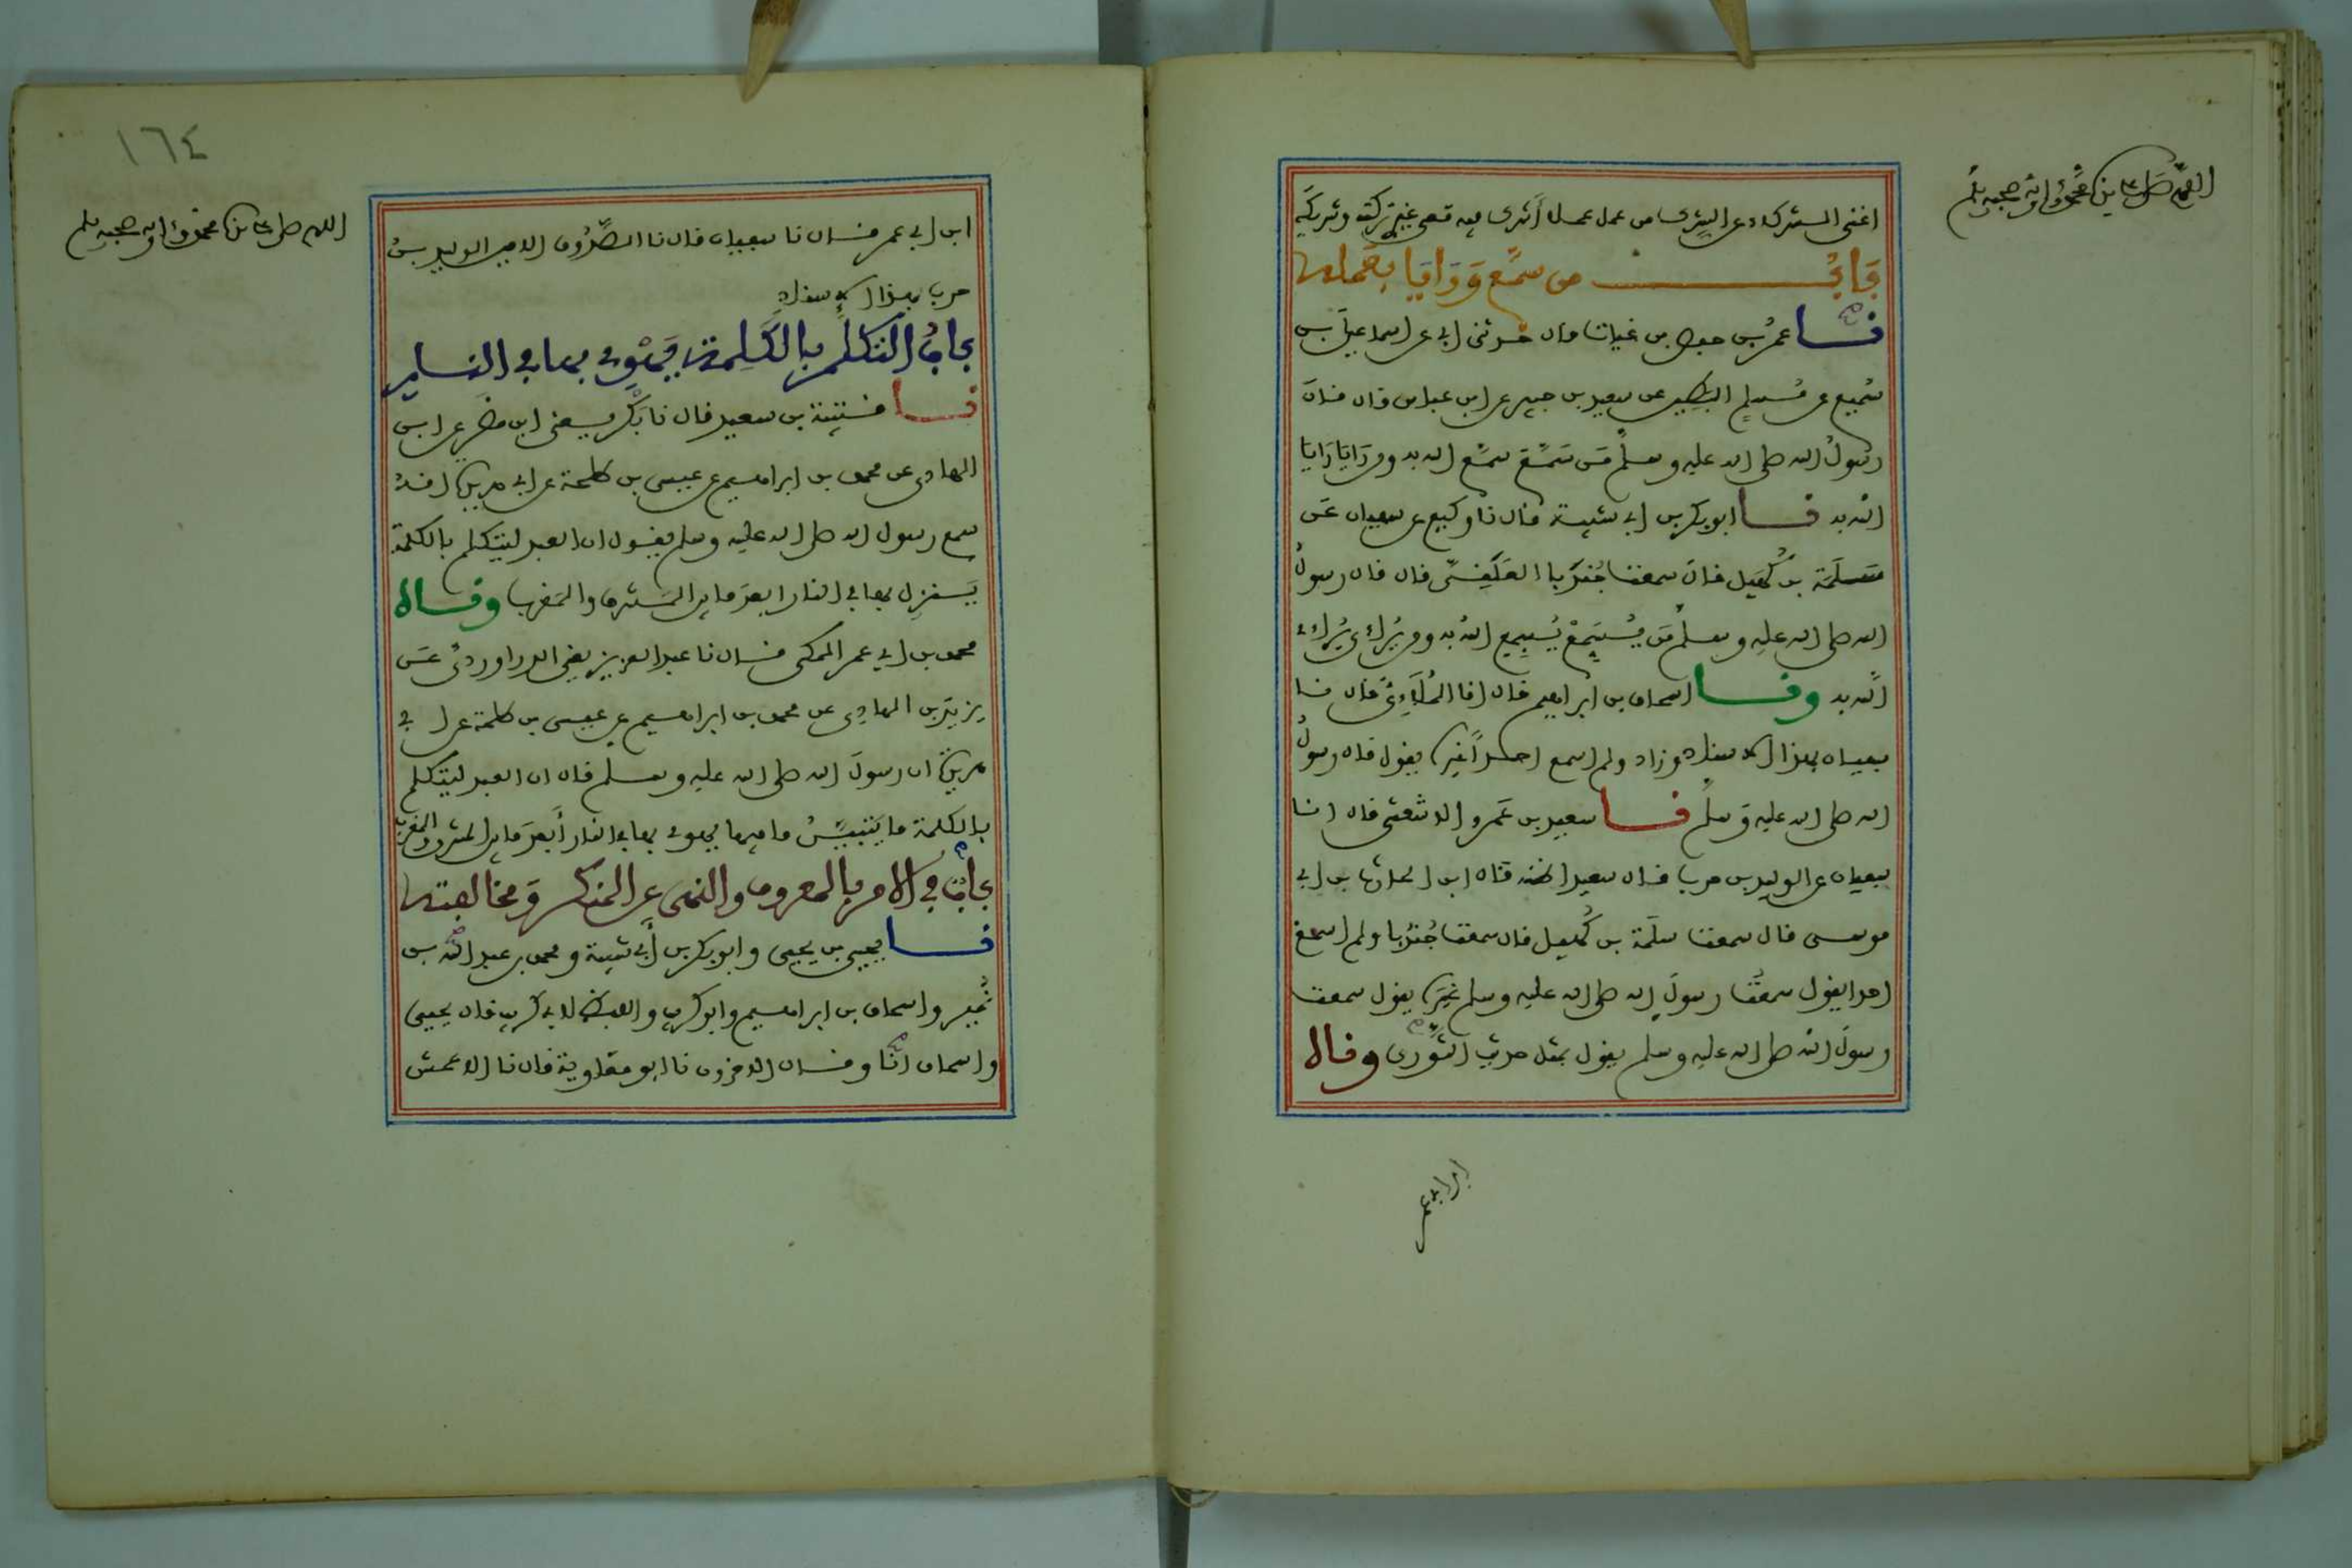 اللهم صل على سيدنا محمد وءاله وصحبه وسلم
اغنى الشركاء عن الشرك من عمل عملا أشرك فيه معي غيري تركته وشركه
باب من سمع ورايا بعمله
نا عمر بن حفص بن غياث قال حدثني ابي عن اسماعيل بن
سميع عن مسلم البطين عن سعيد بن جبير عن ابن عباس قال قال
رسول الله صلى الله عليه وسلم من سمع سمع الله به ومن رايا رايا
الله به نا ابو بكر بن ابي شيبة قال نا وكيع عن سفيان عن
سلمة بن كهيل قال سمعت جندبا العلقي قال قال رسول
الله صلى الله عليه وسلم من يسمع يسمع الله به ومن يراءي يراءي
الله به ونا اسحاق بن ابراهيم قال انا الملاءي قال نا
سفيان بهذا الاسناد وزاد ولم اسمع احدا غيره يقول قال رسول
الله صلى الله عليه وسلم نا سعيد بن عمرو الاشعثي قال انا
سفيان عن الوليد بن حرب قال سعيد اظنه قال ابن الحارث بن ابي
موسى قال سمعت سلمة بن كهيل قال سمعت جندبا ولم اسمع
احدا يقول سمعت رسول الله صلى الله عليه وسلم غيره يقول سمعت
رسول الله صلى الله عليه وسلم يقول بمثل حديث الثوري وقال
١٦٤
اللهم صل على سيدنا محمد وءاله وصحبه وسلم
ابن ابي عمر قال نا سفيان قال نا الصدوق الامين الوليد بن
حرب بهذا الاسناد
باب التكلم بالكلمة يهوي بها في النار
نا قتيبة بن سعيد قال نا بكر يعني ابن مضر عن ابن
الهادي عن محمد بن ابراهيم عن عيسى بن طلحة عن ابي هريرة انه
سمع رسول الله صلى الله عليه وسلم يقول ان العبد ليتكلم بالكلمة
ينزل بها في النار ابعد ما بين المشرق والمغرب وقال
محمد بن ابي عمر المكي قال نا عبد العزيز يعني الدراوردي عن
يزيد بن الهادي عن محمد بن ابراهيم عن عيسى بن طلحة عن ابي
هريرة ان رسول الله صلى الله عليه وسلم قال ان العبد ليتكلم
بالكلمة ما يتبين ما فيها يهوي بها في النار أبعد ما بين المشرق والمغرب
باب في الامر بالمعروف والنهي عن المنكر ومخالفته
نا يحيى بن يحيى وابو بكر بن أبي شيبة ومحمد بن عبد الله بن
نمير واسحاق بن ابراهيم وابو كريب واللفظ لابي كريب قال يحيى
واسحاق انا وقال الاخرون نا ابو معاوية قال نا الاعمش